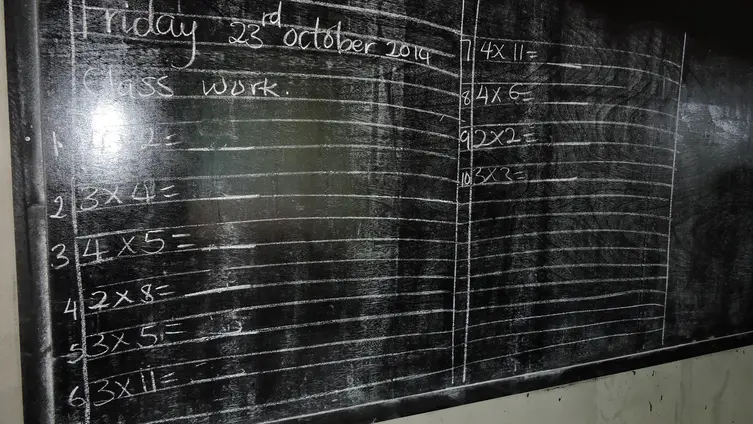 Friday 23rd october 2014
Class work.
1 2=
2 3x4= __
3 4x5= __
4 2x8= __
5 3x5= __
6 3x11= __
7 4x11= __
8 4x6= __
9 2x2= __
10 3x3= __